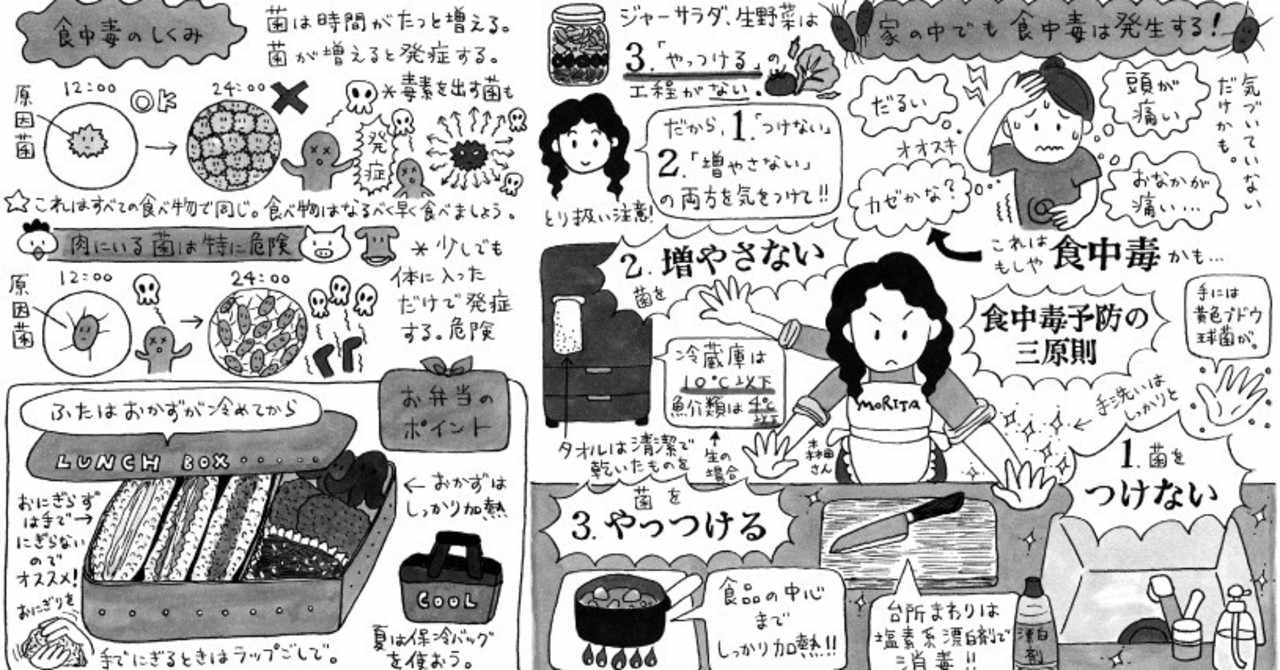 食中毒のしくみ
菌は時間がたつと増える。
菌が増えると発症する。
原因菌
12:00
OK
24:00
*毒素を出す菌も
発症
☆これはすべての食べ物で同じ。食べ物はなるべく早く食べましょう。
肉にいる菌は特に危険
*少しでも
体に入った
だけで発症
する。危険
原因菌
12:00
24:00
お弁当の
ポイント
ふたはおかずが冷めてから
LUNCH BOX
おにぎらず
は手で
にぎらない
ので
オススメ!
おにぎりを
手でにぎるときはラップごしで。
←おかずは
しっかり加熱
COOL
夏は保冷バッグ
を使おう。
ジャーサラダ、生野菜は
3.「やっつける」の
工程がない。
だから1.「つけない」
2.「増やさない」
の両方を気をつけて!!
とり扱い注意!
家の中でも食中毒は発生する!
だるい
オオスキ
カゼかな?
頭が
痛い
おなかが
痛い…
気づいていない
だけかも。
これは
もしや食中毒かも…
2.増やさない
菌を
冷蔵庫は
10℃以下
魚介類は4℃以下
生の
場合
タオルは清潔で
乾いたものを
MORITA
森田さん
食中毒予防の
三原則
手には
黄色ブドウ
球菌が。
手洗いは
しっかりと
1.菌を
つけない
菌を
3.やっつける
食品の中心
まで
しっかり加熱!!
台所まわりは
塩素系漂白剤で
消毒!!
漂白剤